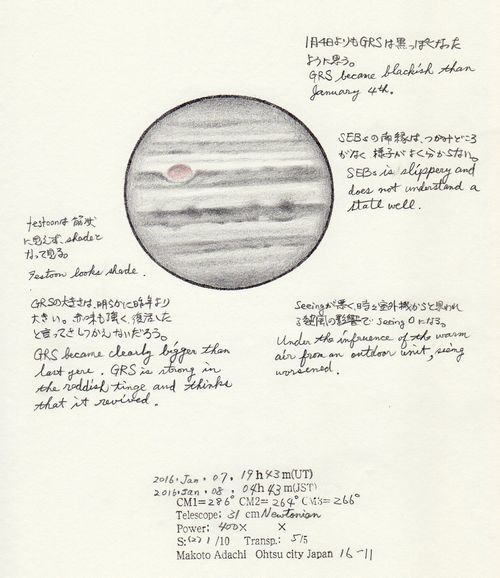 1月4日よりもGRSは黒っぽくなった
ように思う。
GRS became blackish than
January 4th.
SEBsの南縁は、つかみどころ
がなく 様子がよく分からない。
SEBs is slippery and
does not understand a
state well.
festoonは 筋状
に見えず、shadeと
なって見る。
Festoon looks shade.
GRSの大きさは、明らかに昨年より
大きい。赤味も強く、復活した
と言ってさしつかえないだろう。
GRS became clearly bigger than
last yere. GRS is strong in
the reddish tinge and thinks
that it revived.
Seeingが悪く、時々室外機からと思われ
る熱風の影響で Seeing 0になる。
Under the influence of the warm
air from an outdoor unit, seeing
worsened.
2016. Jan. 07, 19h43m(UT)
2016. Jan. 08, 04h43m(JST)
CM1=286° CM2=264° CM3=266°
Telescope: 31 cm Newtonian
Power: 400× ×
S:(2) 1/10 Transp.: 5/5
Makoto Adachi Ohtsu city Japan 16-11